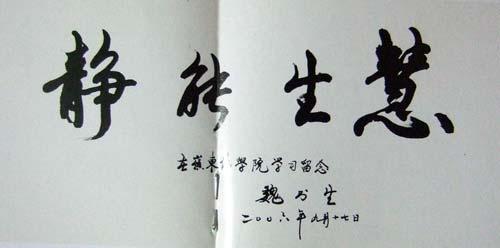 静能生慧
在東学院学习留念
魏书生
二〇〇六年九月十七日